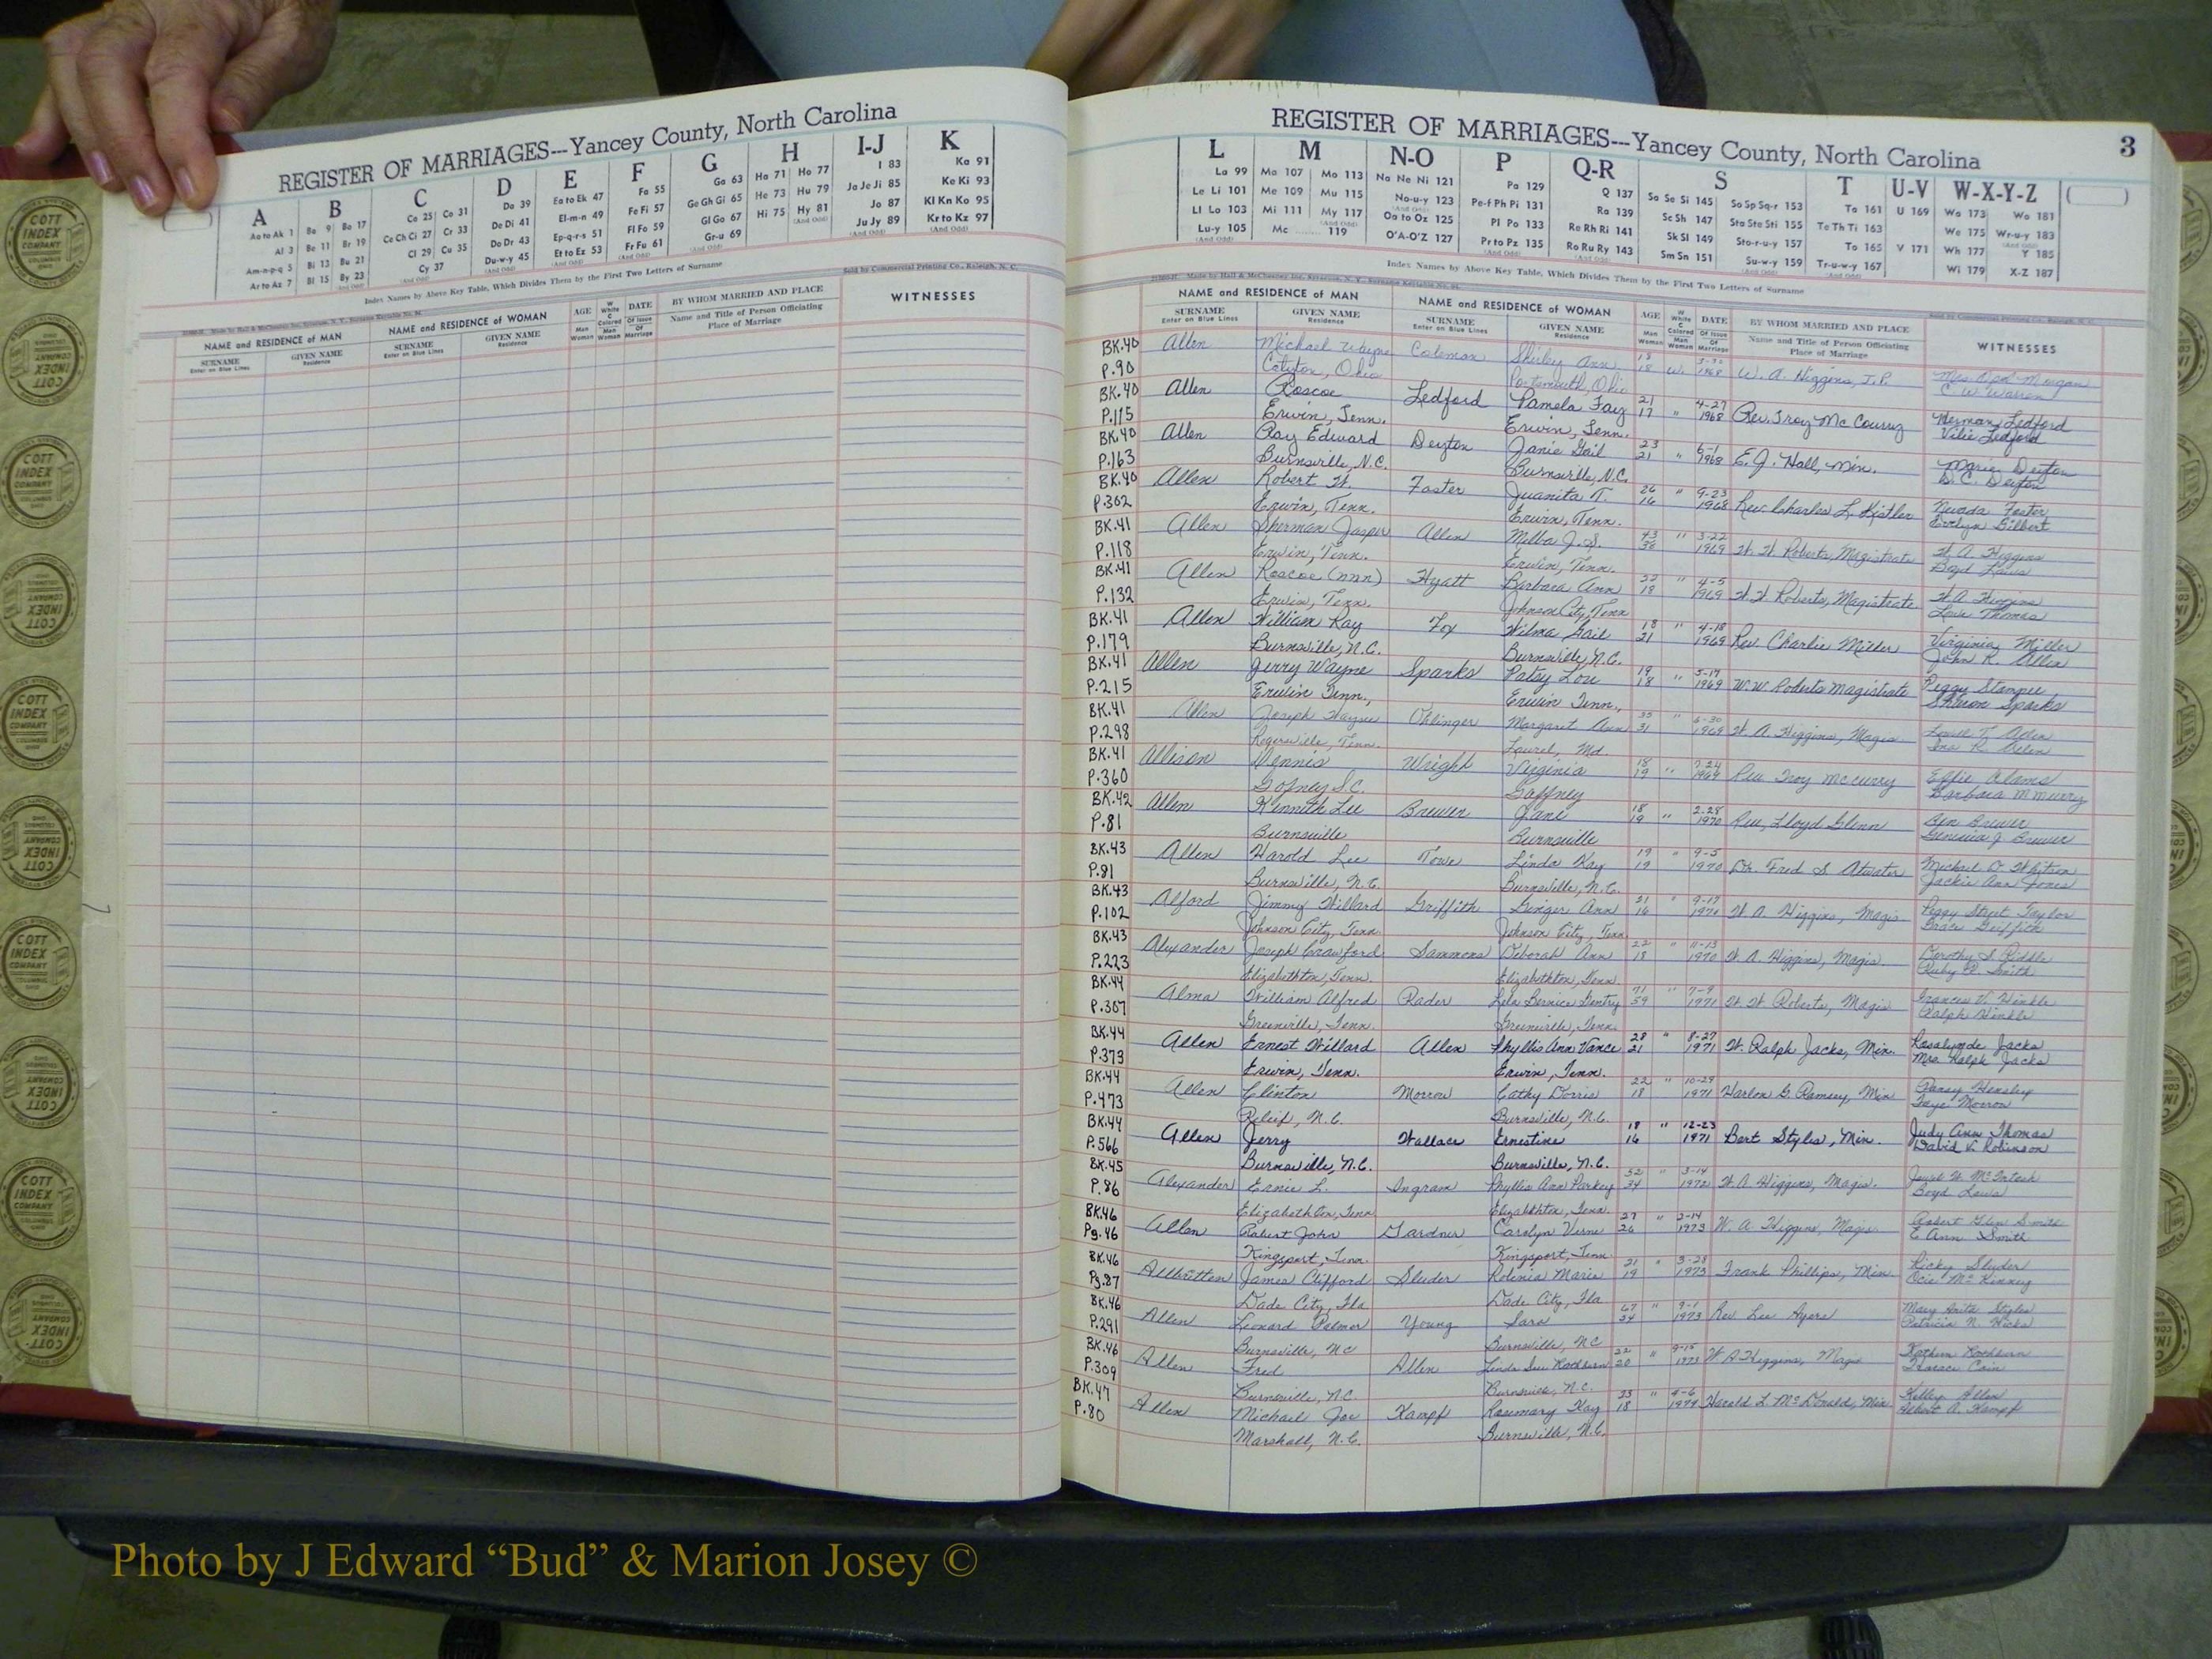 REGISTER OF MARRIAGES---Yancey County, North Carolina
A B C D E F G H I-J K
Aa to Ak 1 Ba 9 Bo 17 Ca 25 Co 31 Da 39 Ea to Ek 47 Fa 55 Ga 63 Ha 71 Ho 77 I 83 Ka 91
Al 3 Be 11 Br 19 Ce Ch Ci 27 Cr 33 De Di 41 El-m-n 49 Fe Fi 57 Ge Gh Gi 65 He 73 Hu 79 Ja Je Ji 85 Ke Ki 93
Am-n-p-q 5 Bi 13 Bu 21 Cl 29 Cu 35 Do Dr 43 Ep-q-r-s 51 Fl Fo 59 Gl Go 67 Hi 75 Hy 81 Jo 87 Kl Kn Ko 95
Ar to Az 7 Bl 15 By 23 Cy 37 Du-w-y 45 Et to Ez 53 Fr Fu 61 Gr-u 69 Ju Jy 89 Kr to Kz 97
Index Names by Above Key Table, Which Divides Them by the First Two Letters of Surname
Sold by Commercial Printing Co., Raleigh, N. C.
NAME and RESIDENCE of MAN NAME and RESIDENCE of WOMAN AGE DATE BY WHOM MARRIED AND PLACE WITNESSES
SURNAME GIVEN NAME SURNAME GIVEN NAME Name and Title of Person Officiating
Enter on Blue Lines Residence Enter on Blue Lines Residence Place of Marriage
REGISTER OF MARRIAGES---Yancey County, North Carolina 3
L M N-O P Q-R S T U-V W-X-Y-Z
La 99 Ma 107 Mo 113 Na Ne Ni 121 Pa 129 Q 137 Sa Se Si 145 So Sp Sq-r 153 Ta 161 U 169 Wa 173 Wo 181
Le Li 101 Me 109 Mu 115 No-u-y 123 Pe-f Ph Pi 131 Ra 139 Sc Sh 147 Sta Ste Sti 155 Te Th Ti 163 We 175 Wr-u-y 183
Ll Lo 103 Mi 111 My 117 Oa to Oz 125 Pl Po 133 Re Rh Ri 141 Sk Sl 149 Sto-r-u-y 157 To 165 V 171 Wh 177 Y 185
Lu-y 105 Mc 119 O'A-O'Z 127 Pr to Pz 135 Ro Ru Ry 143 Sm Sn 151 Su-w-y 159 Tr-u-w-y 167 Wi 179 X-Z 187
Index Names by Above Key Table, Which Divides Them by the First Two Letters of Surname
NAME and RESIDENCE of MAN NAME and RESIDENCE of WOMAN AGE DATE BY WHOM MARRIED AND PLACE WITNESSES
SURNAME GIVEN NAME SURNAME GIVEN NAME Name and Title of Person Officiating
Enter on Blue Lines Residence Enter on Blue Lines Residence Place of Marriage
BK.40 Allen Michael Wayne Coleman Shirley Ann 18 1968 W. A. Higgins, J.P.
P.90 Ohio 18 W. Portsmouth, Ohio C W Warren
BK.40 Allen Roscoe Ledford Pamela Fay 21 4-27 Rev. Troy Mc Courry Herman Ledford
P.115 Erwin, Tenn. Erwin, Tenn. 17 " 1968 Vilie Ledford
BK.40 Allen Ray Edward Deyton Janie Gail 23 6-1 E. J. Hall, Min. Marie Deyton
P.163 Burnsville, N.C. Burnsville, N.C. 21 " 1968 D.C. Deyton
BK.40 Allen Robert W. Foster Juanita T. 26 9-23 Rev. Charles L. Kistler Nevada Foster
P.302 Erwin, Tenn. Erwin, Tenn. 16 " 1968 Evelyn Gilbert
BK.41 Allen Sherman Jasper Allen Melba J. S. 43 3-22 W. W. Roberts, Magistrate W. A. Higgins
P.118 Erwin, Tenn. Erwin, Tenn. 36 " 1969 Boyd Lewis
BK.41 Allen Roscoe (nmn) Hyatt Barbara Ann 22 4-5 W. W. Roberts, Magistrate W. A. Higgins
P.132 Erwin, Tenn. Johnson City, Tenn 18 " 1969 Thomas
BK.41 Allen William Ray Fox Wilma Gail 18 4-18 Rev. Charlie Miller Virginia Miller
P.179 Burnsville, N.C. Burnsville, N.C. 21 " 1969 John R. Allen
BK.41 Allen Jerry Wayne Sparks Patsy Lou 19 5-17 W. W. Roberts Magistrate Peggy
P.215 Erwin Tenn., Erwin Tenn., 18 " 1969 Sparks
BK.41 Allen Joseph Wayne Ohlinger Margaret Ann 35 6-30 W. A. Higgins, Magis Lowell T. Allen
P.298 Rogersville, Tenn. Laurel, Md. 31 " 1969
BK.41 Allison Dennis Wright Virginia 18 7-24 Rev Troy McCurry Effie Adams
P.360 Gafney S.C. Gaffney 19 " 1969 Barbara
BK.42 Allen Kennith Lee Brewer Jane 18 2-28 Rev, Lloyd Glenn Ben Brewer
P.81 Burnsville Burnsville 19 " 1970 Brewer
BK.43 Allen Harold Lee Towe Linda Kay 19 9-5 Dr. Fred S Atwater Michael O Whitson
P.81 Burnsville, N.C. Burnsville, N.C. 19 " 1970 Jackie Ann Jones
BK.43 Alford Jimmy Willard Griffith Ginger Ann 21 9-17 W. A. Higgins, Magis Peggy Street Taylor
P.102 Johnson City, Tenn. Johnson City, Tenn. 16 " 1970 Grace Griffith
BK.43 Alexander Joseph Crawford Sammons Deborah Ann 22 11-13 W. A. Higgins, Magis. Dorothy S. Riddle
P.223 Elizabethton, Tenn. Elizabethton, Tenn. 18 " 1970 Ruby D. Smith
BK.44 Alma William Alfred Rader Lela Bernice Gentry 71 7-9 W. W. Roberts, Magis Frances V. Hinkle
P.307 Greenville, Tenn. Greenville, Tenn. 59 " 1971 Ralph Hinkle
BK.44 Allen Ernest Willard Allen Phyllis Ann Vance 28 8-27 W. Ralph Jacks, Min. Rosalynde Jacks
P.373 Erwin, Tenn. Erwin, Tenn. 21 " 1971 Mrs. Ralph Jacks
BK.44 Allen Clinton Morrow Cathy Dorris 22 10-29 Harlon G. Ramsey, Min Pansy Hensley
P.473 Relief, N.C. Burnsville, N.C. 18 " 1971 Faye Morrow
BK.44 Allen Jerry Wallace Ernestine 18 12-23 Bert Styles, Min. Judy Ann Thomas
P.566 Burnsville, N.C. Burnsville, N.C. 16 " 1971 David V. Robinson
BK.45 Alexander Ernie L. Ingram Phyllis Ann Parkey 52 3-14 W. A. Higgins, Magis. McIntosh
P.86 Elizabethton, Tenn. Elizabethton, Tenn. 34 " 1972 Boyd Lewis
BK.46 Allen Robert John Gardner Carolyn Verne 27 2-14 W. A. Higgins, Magis Robert Glen Smith
Pg.46 Kingsport, Tenn. Kingsport, Tenn. 26 " 1973 E Ann Smith
BK.46 Allbritten James Clifford Sluder Rolinia Marie 21 3-28 Frank Phillips, Min. Ricky Sluder
Pg.87 Dade City, Fla Dade City, Fla 19 " 1973 Ocie McKinney
BK.46 Allen Leonard Palmer Young Sara 67 9-1 Rev Lee Ayers Mary Anita Styles
P.291 Burnsville, NC Burnsville, NC 54 " 1973 Patricia N. Hicks
BK.46 Allen Fred Allen Linda Sue Rathburn 22 9-15 W A Higgins, Magis Rathburn
P.309 Burnsville, NC. Burnsville, N.C. 20 " 1973 Horace Cain
BK.47 Allen Michael Joe Kampf Rosemary Kay 23 4-6 Harold L. McDonald, Min. Kelley Allen
P.80 Marshall, N.C. Burnsville, N.C. 18 " 1974 Albert A. Kampf
COTT INDEX COMPANY COLUMBUS OHIO
Photo by J Edward “Bud” & Marion Josey ©